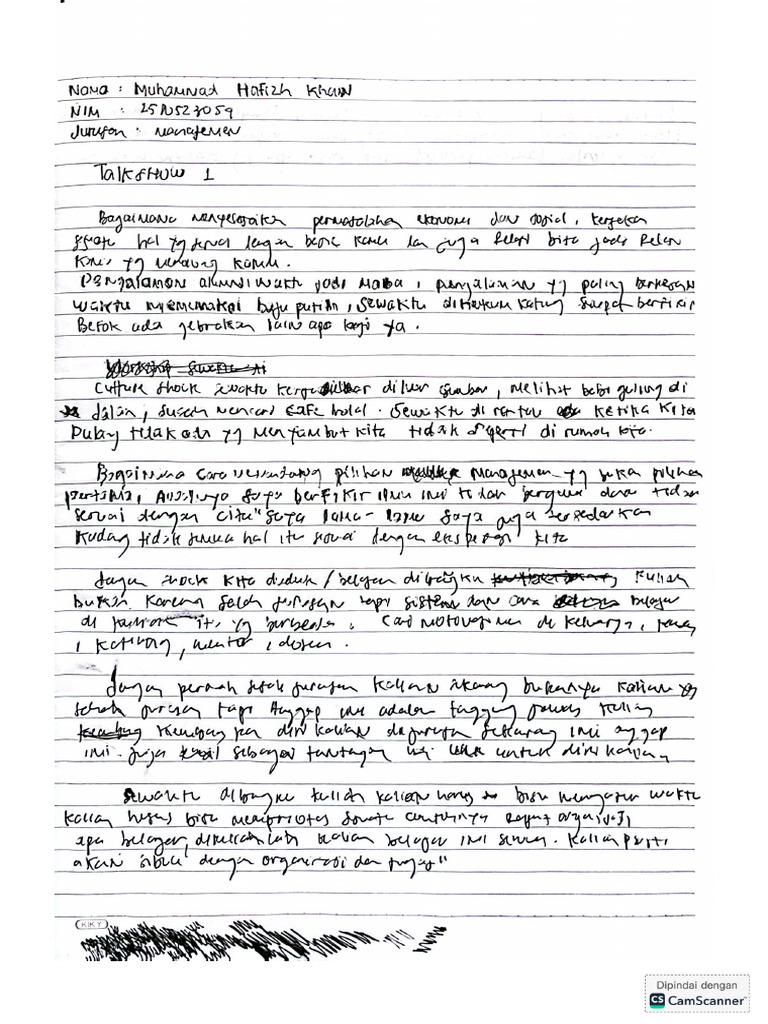 Nama : Muhammad Hafizh Khair
NIM : 2510523059
Jurusan : Manajemen
Talkshow 1
Bagaimana menyelesaikan permasalahan ekonomi dan sosial, kerjakan
suatu hal yg sesuai dengan kamu dan juga bisa jadi
yg kamu.
Pengalaman alumni waktu jadi maba, pengalaman yg paling berkesan
waktu memakai baju putih, sewaktu dihukum sampai berfikir
Besok ada gebrakan lain apa lagi ya.
Culture shock sewaktu kerja diluar sumbar, melihat babi guling di
Jalan, susah mencari cafe halal. Sewaktu di rantau ketika kita
Pulang tidak ada yg menyambut kita tidak seperti di rumah kita.
Bagaimana cara memandang pilihan manajemen yg bukan pilihan
pertama, Awalnya saya berfikir ilmu ini tidak berguna dan tidak
sesuai dengan cita" saya lama-lama saya juga tersadarkan
Kadang tidak semua hal itu sesuai dengan ekspetasi kita
Jangan shock kita duduk / belajar dibangku kuliah
bukan karena salah jurusan tapi sistem dan cara belajar
di itu yg berbeda. Cari motivasimu di keluarga,
, kating, mentor, dosen.
Jangan pernah sebut jurusan kalian sekarang bukannya kalian yg
salah jurusan tapi Anggap ini adalah tanggung jawab kalian
kembangkan diri kalian di jurusan sekarang ini anggap
ini juga sebagai tantangan untuk diri kalian.
Sewaktu dibangku kuliah kalian harus bisa mengatur waktu
kalian harus bisa memprioritas contohnya rapat organisasi
apa belajar, kalian belajar ini semua. Kalian pasti
akan sibuk dengan organisasi dan tugas"
KIKY
Dipindai dengan
CS CamScanner